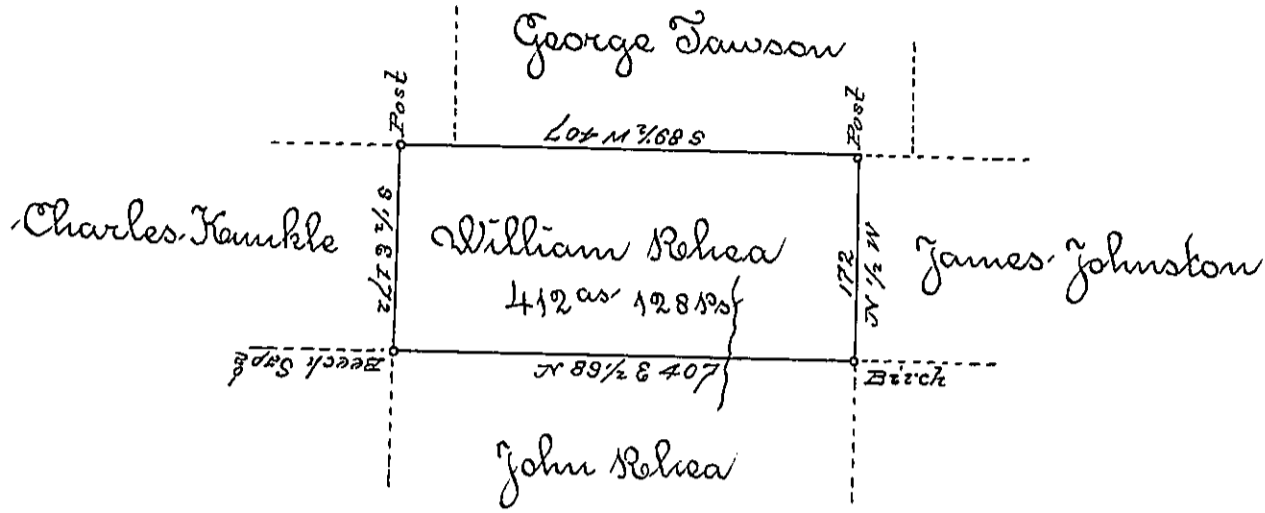 George Tawson
Post
Post
S 89½ W 407
Charles Kunkle
S ½ E 172
William Rhea
412 as 128 ps
172
N ½ W
James Johnston
Beech Sapg
N 89½ E 407
Birch
John Rhea